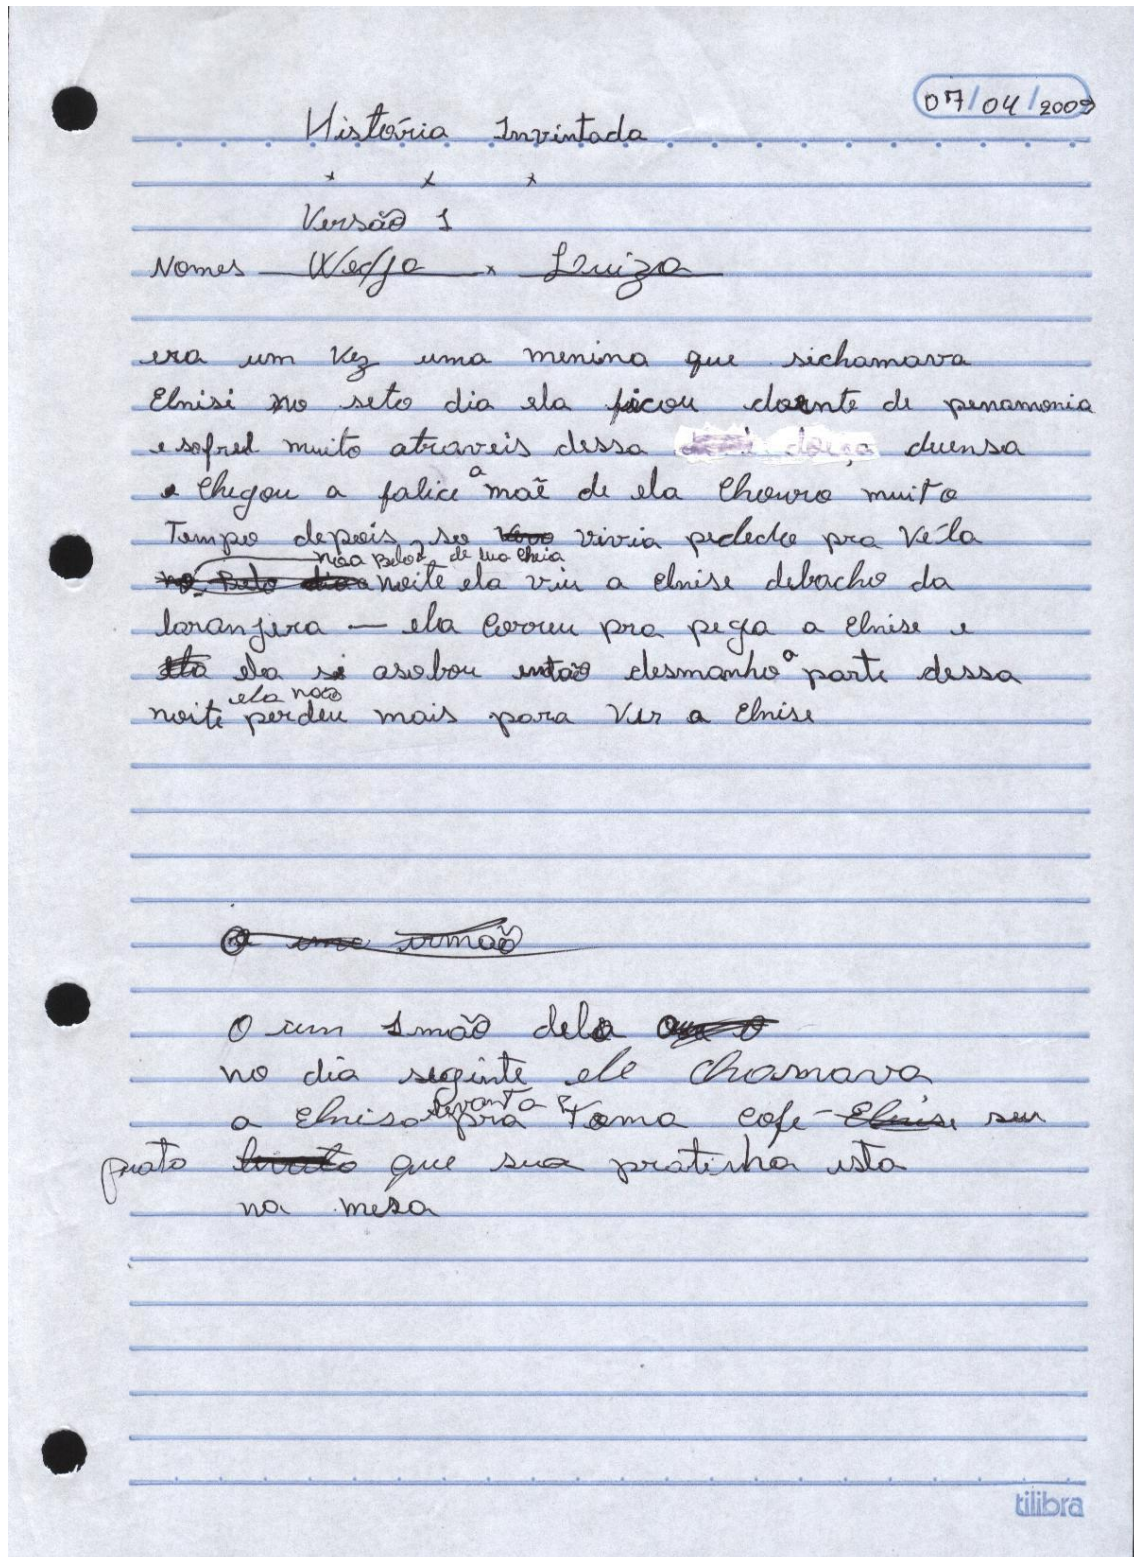 07/04/2009
História Invintada
x x x
Versão 1
Nomes Wedja x Luiza
era um vez uma menina que sichamava
Elnisi no seto dia ela ficou doente de penamonia
e sofred muito atraveis dessa duensa
e chegou a falice a maẽ de ela chouro muito
Tempo depois, so vivia pedede pra vê-la
nũa Belo de lua cheia
no Belo dia noite ela viu a elnise debacho da
laranjeira — ela correu pra pega a Elnise e
ela ela si asobou entaõ desmanho a parte dessa
ela naõ
noite perdeu mais para ver a Elnise
O um irmaõ
O um 1maõ dela
no dia seginte ele chamava
a Elnise levanta pra Toma cofe - Elnise seu
prato que sua pratinha ista
na mesa
tilibra